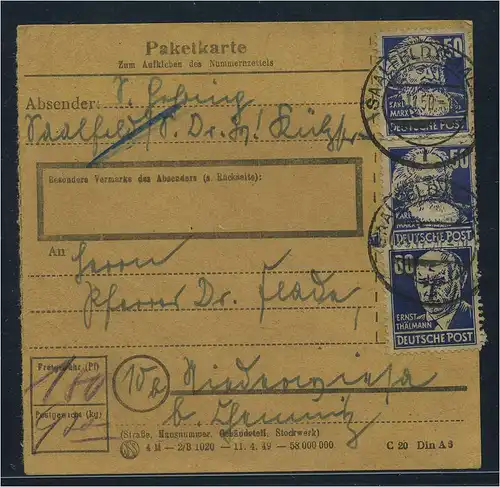 Paketkarte
Zum Aufkleben des Nummernzettels
Absender: S.
Saalfeld/S. Dr.
Besondere Vermerke des Absenders (s. Rückseite):
An
Herrn
Pfarrer Dr. Flade
Freigebühr (Pf)
180
Postgewicht (kg)
10b
Niederwiesa
b. Chemnitz
(Straße, Hausnummer, Gebäudeteil, Stockwerk)
4 M — 2/B 1020 — 11. 4. 49 — 58 000 000
C 20 Din A 6
50
KARL
MARX
DEUTSCHE POST
50
KARL
MARX
DEUTSCHE POST
80
ERNST
THÄLMANN
DEUTSCHE POST
SAALFELD
SAALFELD